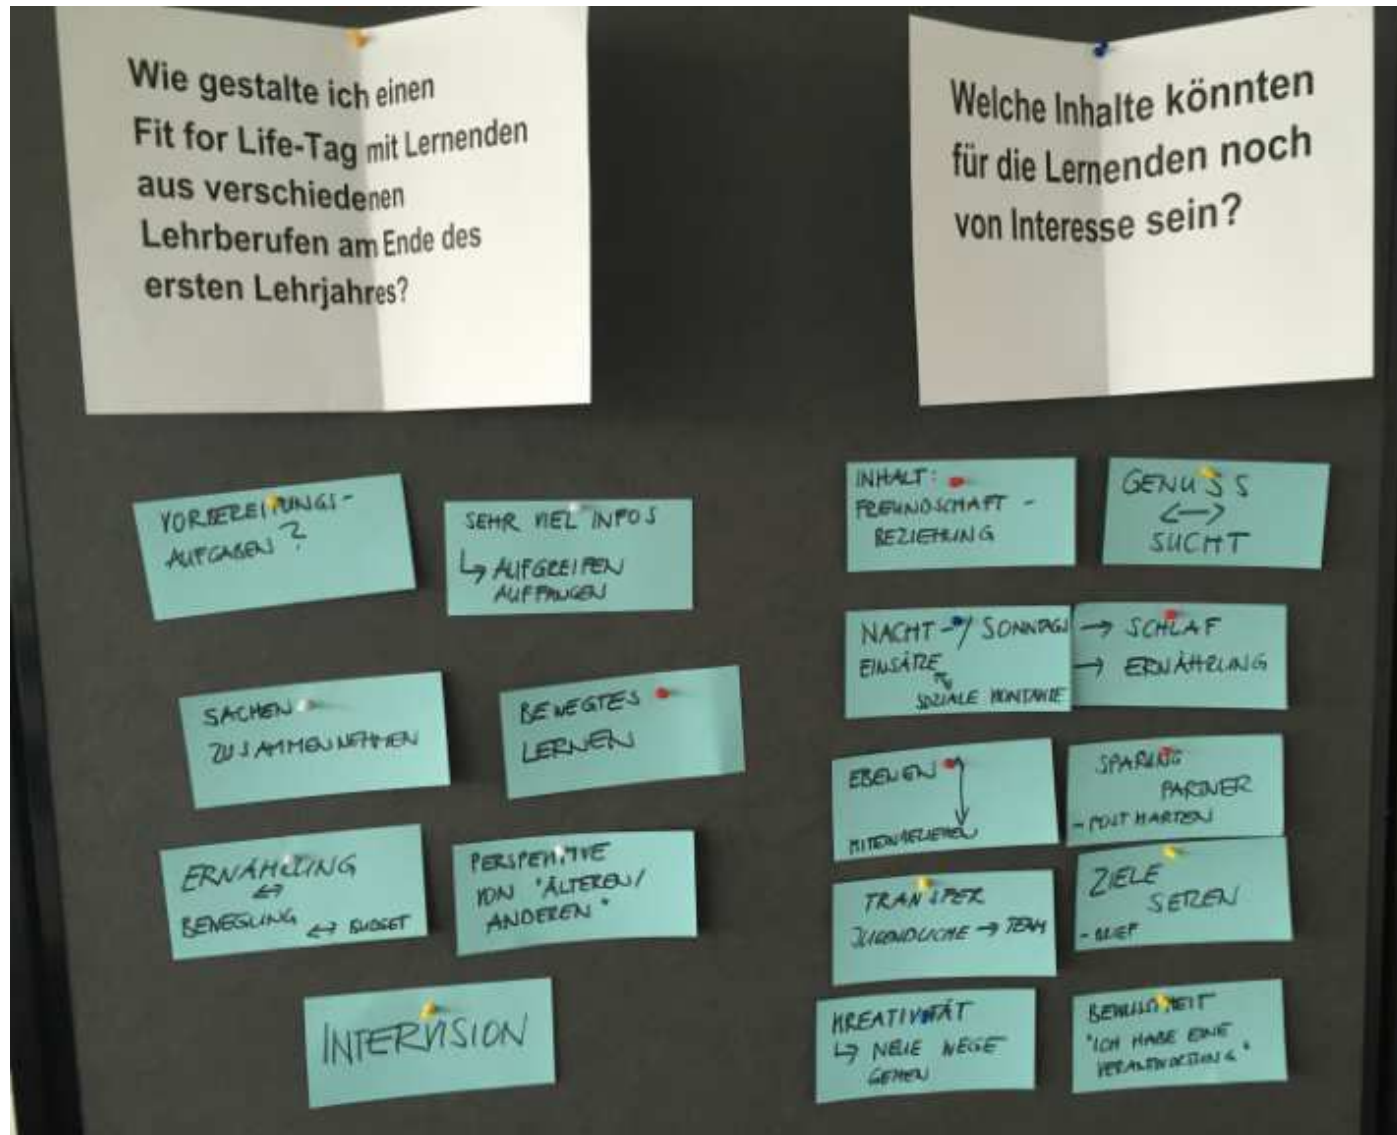 Wie gestalte ich einen
Fit for Life-Tag mit Lernenden
aus verschiedenen
Lehrberufen am Ende des
ersten Lehrjahres?
VORBEREITUNGS-
AUFGABEN?
SEHR VIEL INFOS
↳ AUFGREIFEN
AUFFANGEN
SACHEN
ZUSAMMENNEHMEN
BEWEGTES
LERNEN
ERNÄHRUNG
↔
BEWEGUNG ↔ BUDGET
PERSPEKTIVE
VON "ÄLTEREN/
ANDEREN"
INTERVISION
Welche Inhalte könnten
für die Lernenden noch
von Interesse sein?
INHALT:
FREUNDSCHAFT -
BEZIEHUNG
GENUSS
↔
SUCHT
NACHT-/SONNTAGS
EINSÄTZE
SOZIALE KONTAKTE
→ SCHLAF
→ ERNÄHRUNG
EBENEN
MITEINBEZIEHEN
SPARING
PARTNER
- POSTKARTEN
TRANSFER
JUGENDLICHE → TEAM
ZIELE
SETZEN
- BRIEF
KREATIVITÄT
↳ NEUE WEGE
GEHEN
BEWUSSTHEIT
"ICH HABE EINE
VERANTWORTUNG"